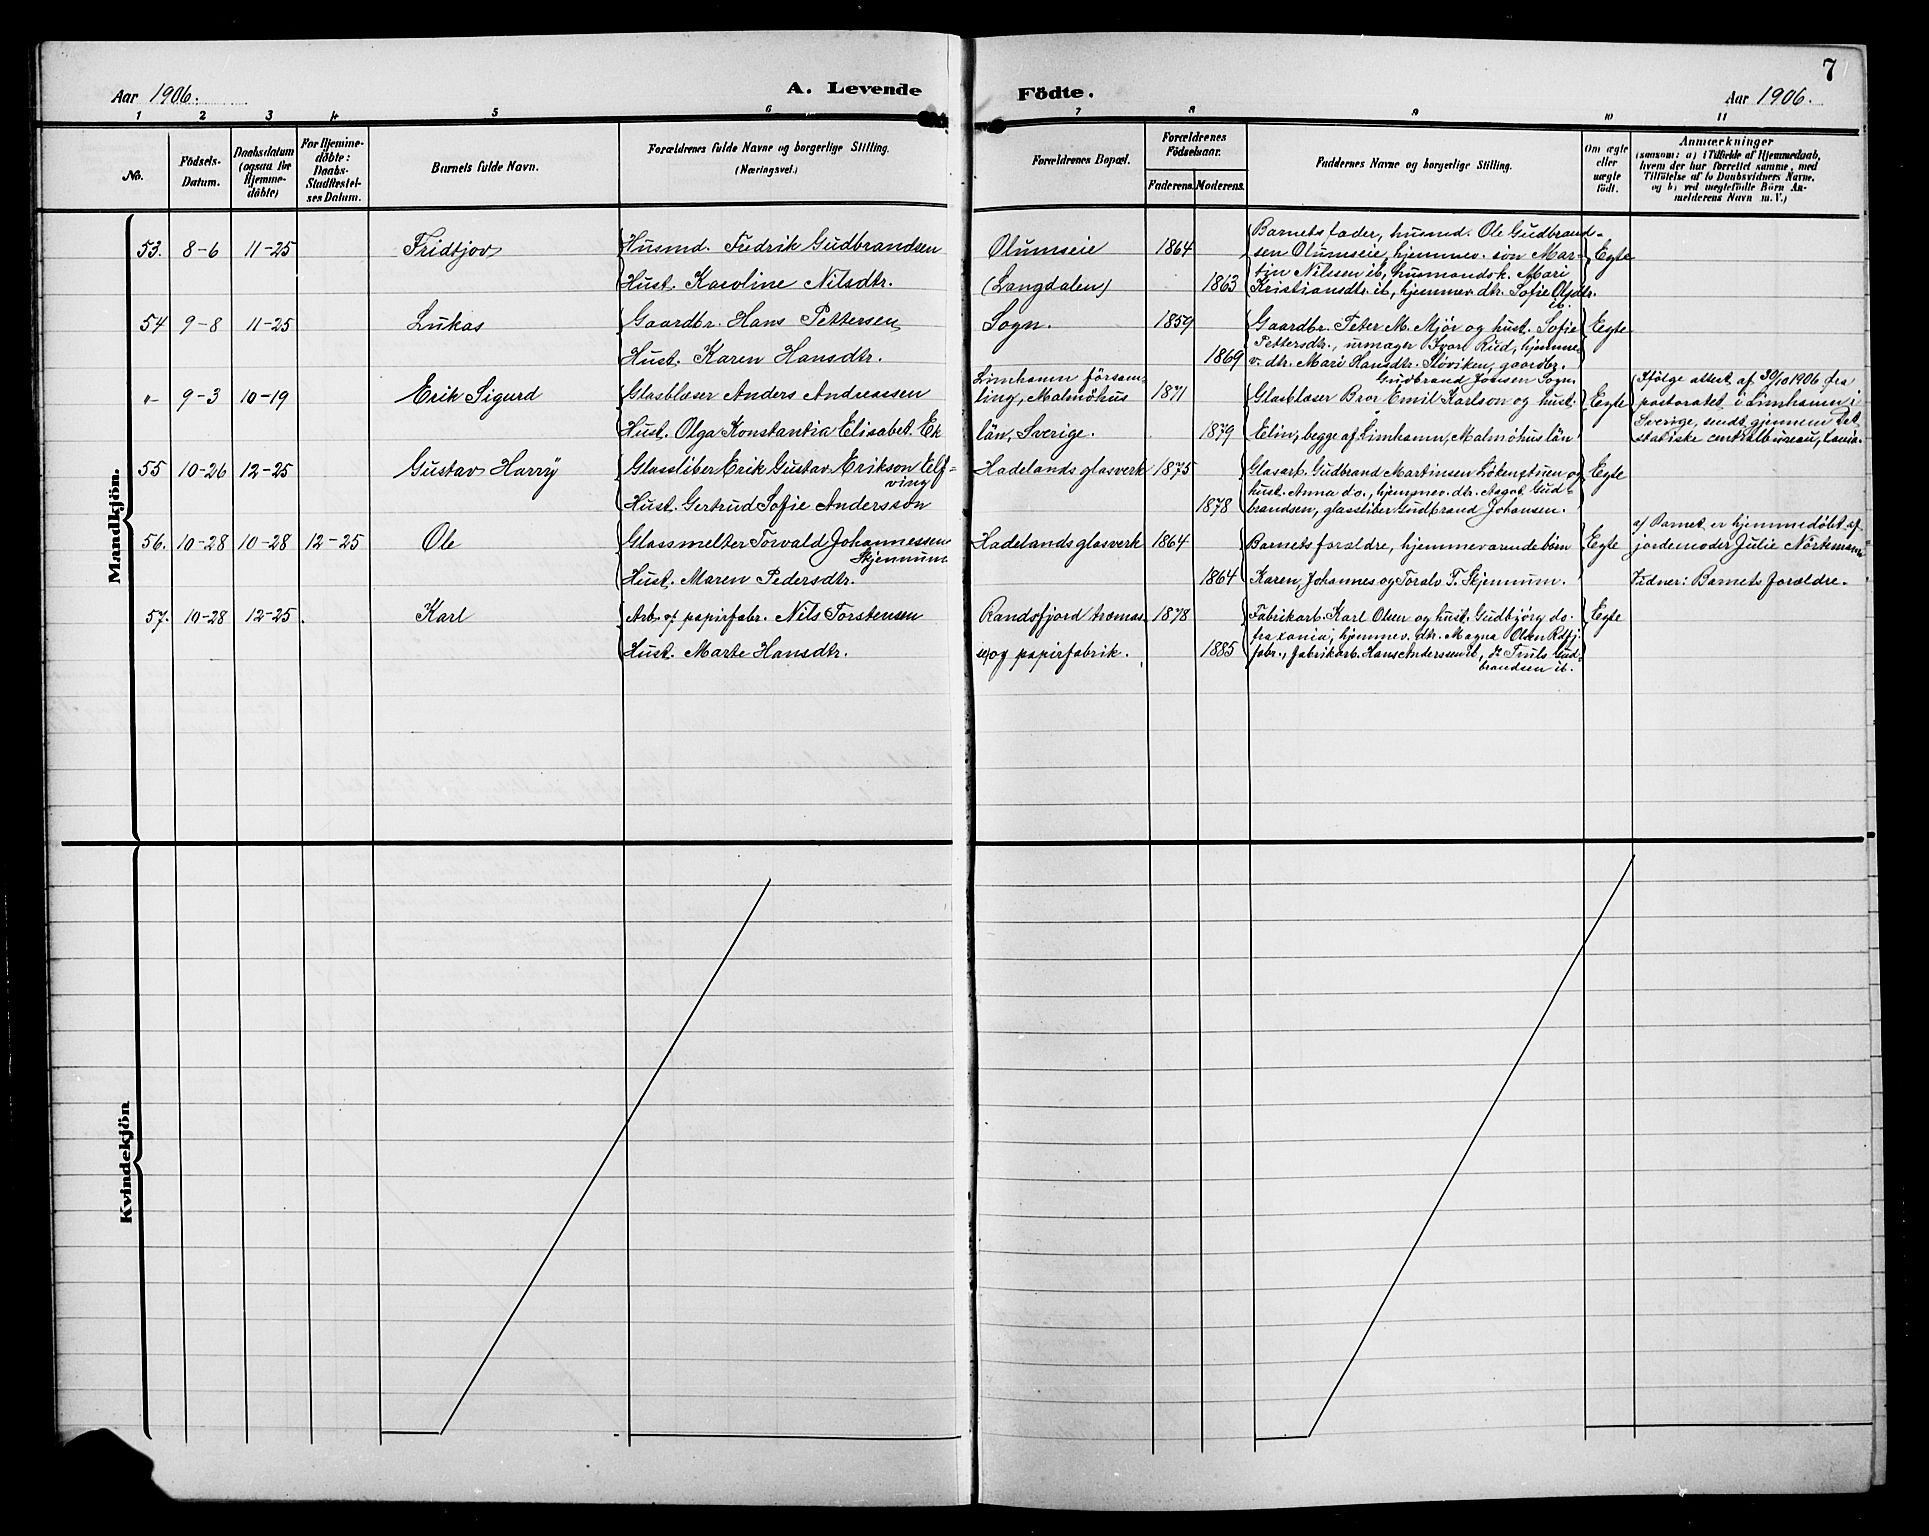 7
Aar 1906.
A. Levende Födte.
Aar 1906.
1 2 3 4 5 6 7 8 9 10 11
No.
Födsels-
Datum.
Daabsdatum
(ogsaa for
Hjemme-
döbte)
For Hjemme-
döbte:
Daabs-
Stadfæstel-
ses Datum.
Barnets fulde Navn.
Forældrenes fulde Navne og borgerlige Stilling.
(Næringsvei.)
Forældrenes Bopæl.
Forældrenes
Födselsaar.
Faderens. Moderens.
Faddernes Navne og borgerlige Stilling.
Om ægte
eller
uægte
födt.
Anmærkninger
(saasom: a) i Tilfælde af Hjemmedaab,
hvem der har forrettet samme, med
Tilföielse af to Daabsvidners Navne.
og b) ved uægtefödte Börn An-
melderens Navn m. V.)
Mandkjön.
53. 8-6 11-25 Fridtjov
Husmd. Fredrik Gudbrandsen
Hust. Karoline Nilsdtr.
Olumseie
(Langdalen)
1864
1863
Barnets fader, husmd. Ole Gudbrand-
sen Olumseie, hjemmev. søn Mar-
tin Nilssen ib, husmandsk. Mari
Kristiansdtr. ib, hjemmev. dtr. Sofie Olsdtr.
ib.
Egte
54 9-8 11-25 Lukas
Gaardbr. Hans Pettersen
Hust. Karen Hansdtr.
Sogn.
1859
1869
Gaardbr. Peter M. Mjør og hust. Sofie
Pettersdtr., urmager Ivar Rud, hjemme-
v. dtr. Mari Hansdtr. Sløviken, gaardbr.
Gudbrand Joensen Sogn.
Egte
"- 9-3 10-19 Erik Sigurd
Glasblaser Anders Andreasen
Hust. Olga Konstantia Elisabet Ek
Limhamn försam-
ling, Malmöhus
län, Sverige.
1871
1879
Glasblaser Bror Emil Karlson og hust.
Elin, begge af Limhamn, Malmöhus län
Egte
Ifølge attest af 30/10 1906 fra
pastoratet i Limhamn i
Sverige, sendt gjennem Det
statiske centralbureau, Xania.
55 10-26 12-25 Gustav Harry
Glassliber Erik Gustav Erikson Elf-
ving
Hust. Gertrud Sofie Andersson
Hadelands glasverk
1875
1878
Glasarb. Gudbrand Martinsen Løkenstuen og
hust. Anna do., hjemmev. dtr. Aagot Gud-
brandsen, glassliber Gudbrand Johansen.
Egte
56. 10-28 10-28 12-25 Ole
Glassmelter Torvald Johannessen
Skjennum
Hust. Maren Pedersdtr.
Hadelands glasverk
1864
1864
Barnets forældre, hjemmeværende børn
Karen, Johannes og Toralv T. Skjennum.
Egte
a) Barnet er hjemmedøbt af
jordemoder Julie Nortsmann
Vidner: Barnets forældre.
57. 10-28 12-25 Karl
Arb. v. papirfabr. Nils Torstensen
Hust. Marte Hansdtr.
Randsfjord træmas-
se og papirfabrik.
1878
1885
Fabrikarb. Karl Olsen og hust. Gudbjörg do.
fra Xania, hjemmev. dtr. Magna Olsen Rdfj.
fabr., fabrikarb. Hans Anderssen ib, do Truls Gud-
brandsen ib.
Egte
Kvindekjön